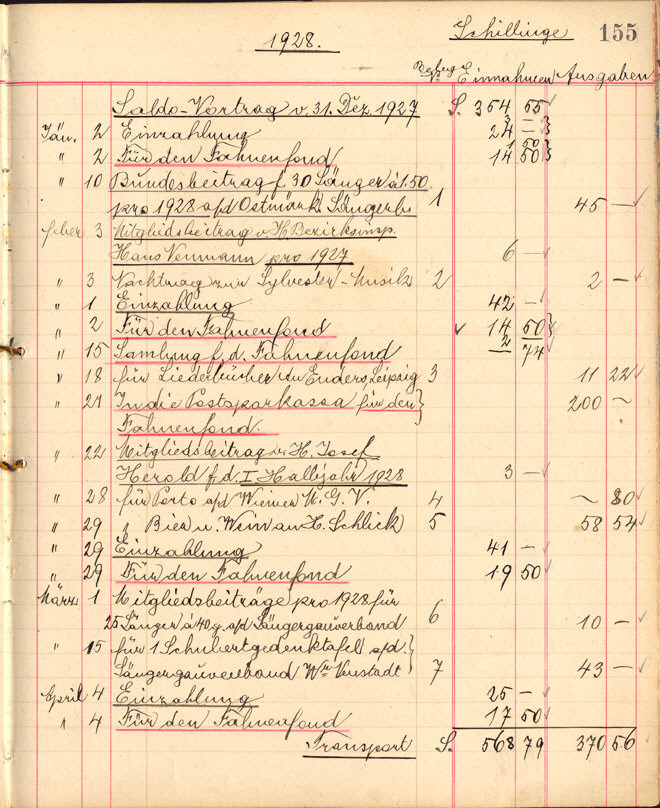 1928. Schillinge 155
Belege No Einnahmen Ausgaben
Saldo-Vortrag v. 31. Dez. 1927 S. 354 55
Jän. 2 Einzahlung 24 —
3 —
1 50
" 2 Für den Fahnenfond 14 50
" 10 Bundesbeitrag f. 30 Sänger à 1·50
pro 1928 a/d Ostmärk. Sängerb. 1 45 —
Feber 3 Mitgliedsbeitrag v. H. Bezirksinsp.
Hans Neumann pro 1927 6 —
" 3 Nachtrag zur Sylvester-Musik 2 2 —
" 1 Einzahlung 42 —
" 2 Für den Fahnenfond 14 50
" 15 Samlung f. d. Fahnenfond 2 74
" 18 für Liederbücher an Enders, Leipzig 3 11 22
" 21 In die Postsparkassa für den
Fahnenfond. 200 ~
" 22 Mitgliedsbeitrag v. H. Josef
Herold f. d. I. Halbjahr 1928 3 —
" 28 für Porto a/d Wiener M. G. V. 4 ~ 80
" 29 " Bier u. Wein an H. Schlick 5 58 54
" 29 Einzahlung 41 —
" 29 Für den Fahnenfond 19 50
März 1 Mitgliedsbeiträge pro 1928 für
25 Sänger à 40 g. a/d Sängergauverband 6 10 —
" 15 für 1 Schubertgedenktafel a/d.
Sängergauverband Wr. Neustadt 7 43 —
April 4 Einzahlung 25 —
" 4 Für den Fahnenfond 17 50
Transport S. 568 79 370 56